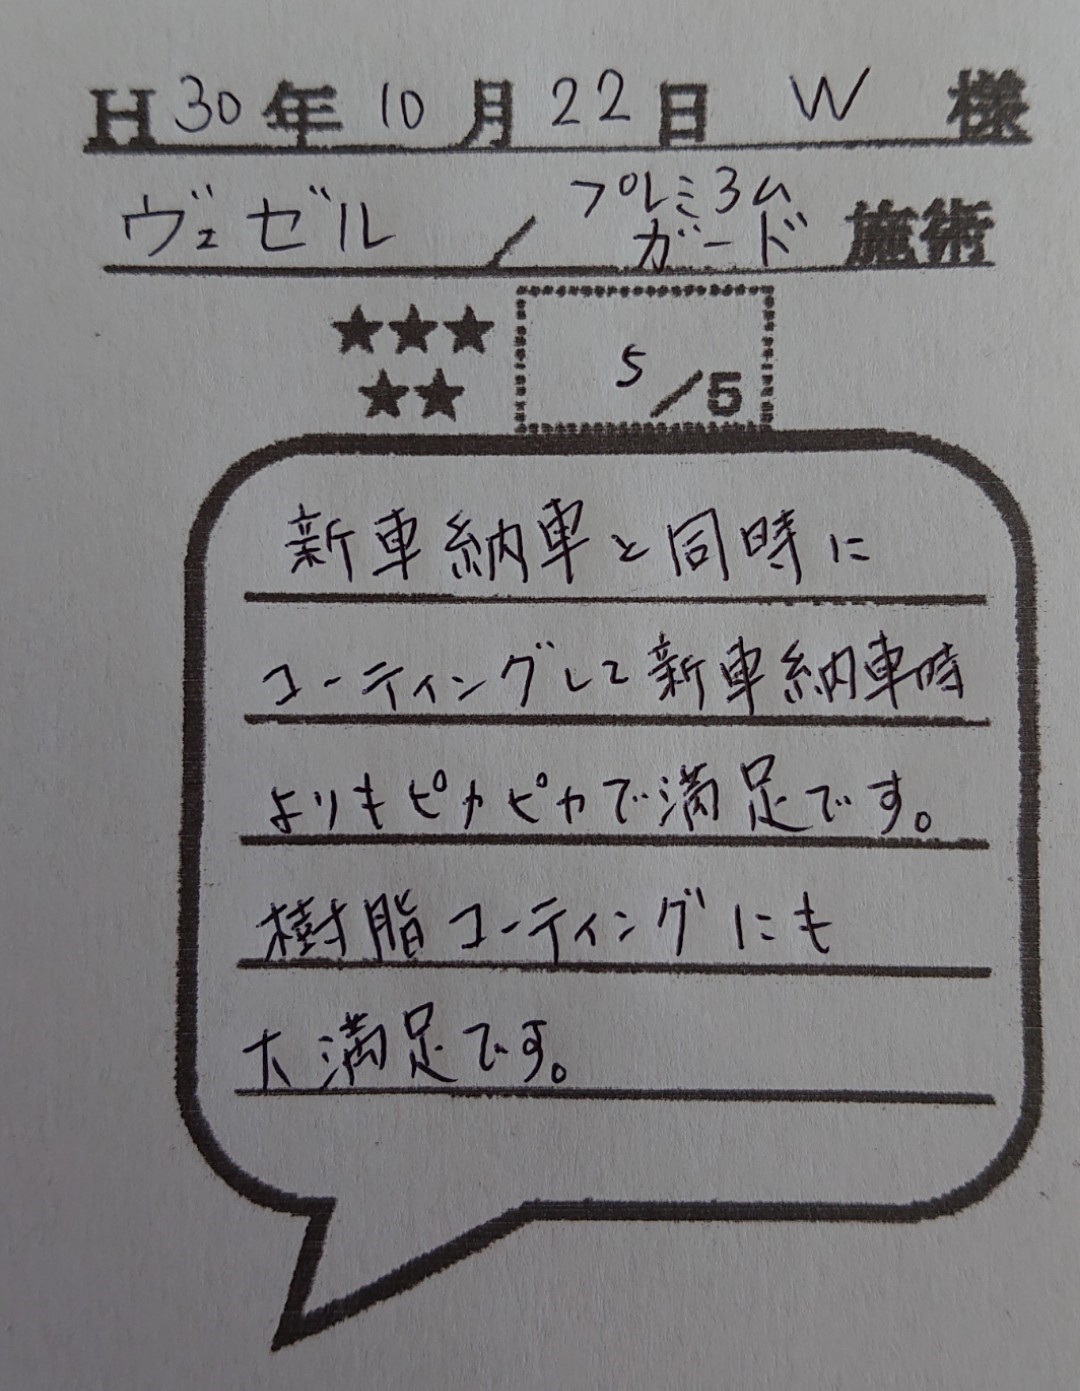 H30年10月22日 W 様
ヴェゼル / プレミヨム
ガード 施術
★★★
★★
5/5
新車納車と同時に
コーティングして新車納車時
よりもピカピカで満足です。
樹脂コーティングにも
大満足です。